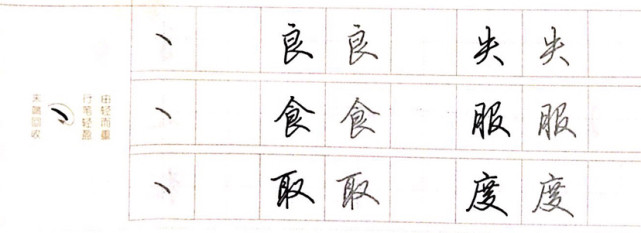 由轻而重
行笔轻盈
末端回收
丶 良 良 失 失
丶 食 食 服 服
丶 取 取 度 度